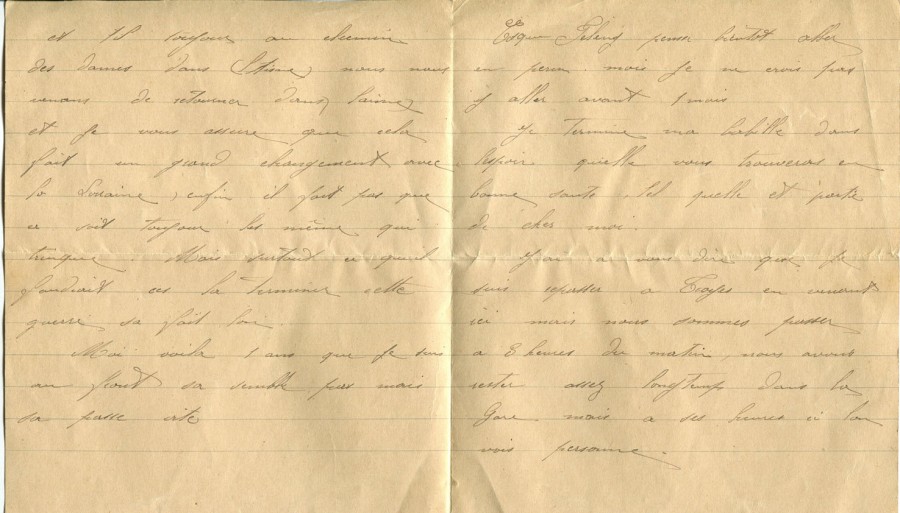 et is toujour au chemin
des dames dans l'Aisne, nous nous
venons de retourner dans l'aisne,
et Je vous assure que cela
fait un grand changement avec
la Loraine, enfin il faut pas que
ce soit toujour les même qui
trinque. Mais surtout ce qu'il
faudrait ces la terminer cette
guerre, sa fait loin.
Moi voila 1 ans que Je suis
au front sa semble pas mais
sa passe vite
Esque pense bientot aller
en perm mois Je ne crois pas
y aller avant 1 mois
Je Termine ma babille dans
l'espoir quelle vous trouveras en
bonne sante, tel quelle et partie
de chez moi.
J'ai a vous dire que Je
suis repasser a Troyes en venant
ici mais nous sommes passer
a 3 heures du matin, nous avons
rester assez longtemp dans la
Gare mais a ses heures ci l'on
vois personne.